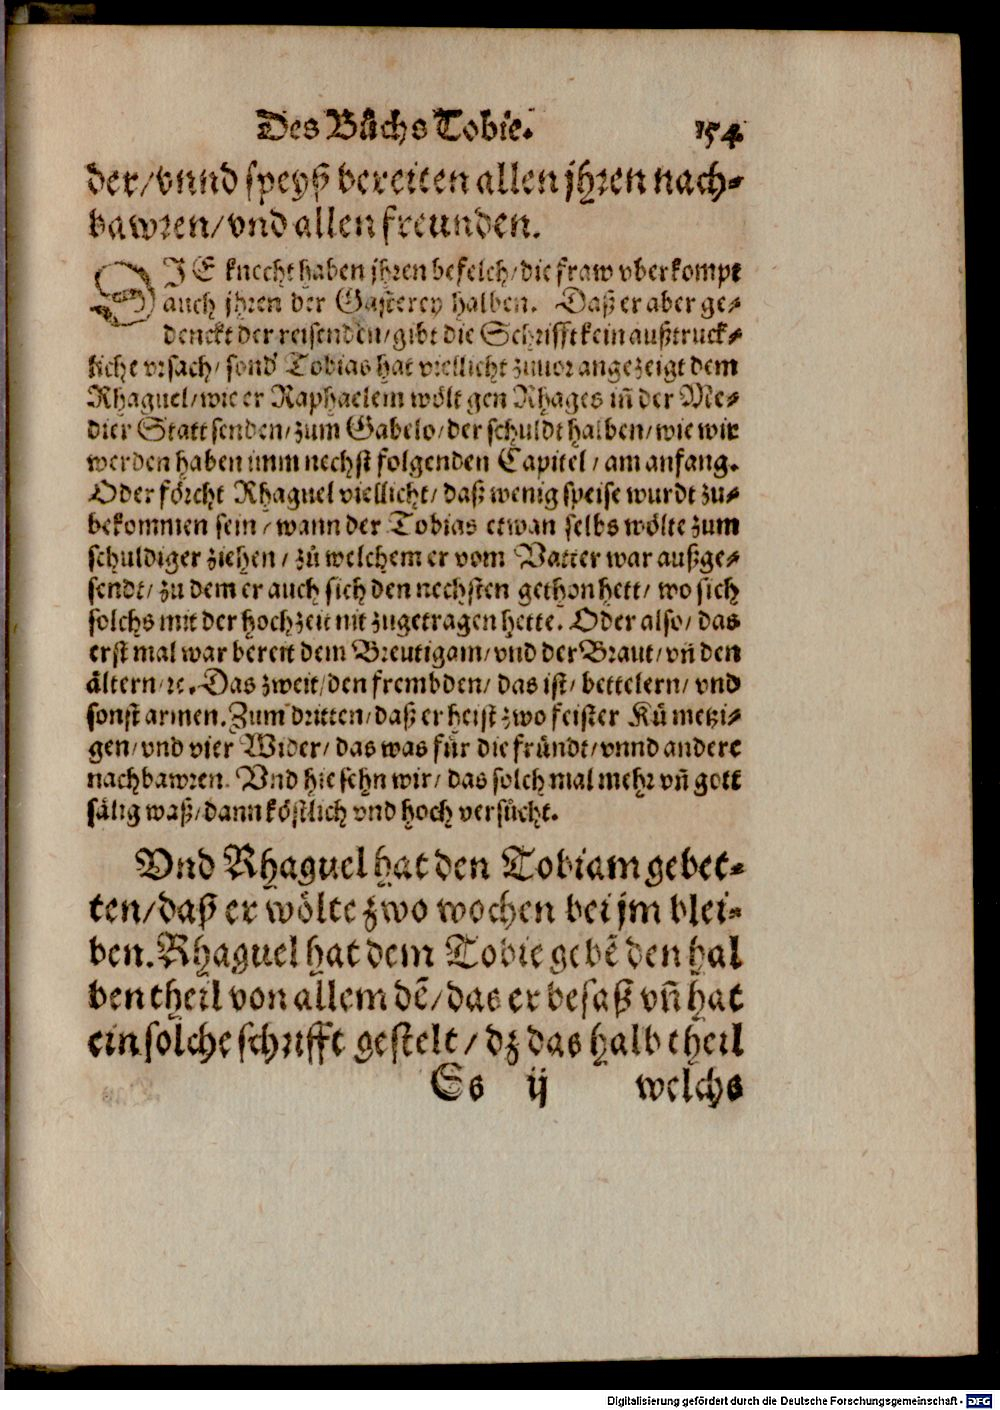 Des Bůchs Tobie. 154.
der/vnnd speyß bereiten allen jhren nach-
bawren/vnd allen freunden.
DIE knecht haben jhren befelch/die fraw vberkompt
auch jhren der Gasterey halben. Daß er aber ge-
denckt der reisenden/gibt die Schrifft kein außtruck-
liche vrsach/sond' Tobias hat viellicht zuuor angezeigt dem
Rhaguel/wie er Raphaelem wölt gen Rhages iñ der Me-
dier Statt senden/zum Gabelo/der schuldt halben/wie wir
werden haben imm nechst folgenden Capitel/am anfang.
Oder förcht Rhaguel viellicht/daß wenig speise wurdt zu-
bekommen sein/wann der Tobias etwan selbs wölte zum
schuldiger ziehen/zů welchem er vom Vatter war außge-
sendt/zu dem er auch sich den nechsten gethon hett/wo sich
solchs mit der hochzeit nit zugetragen hette. Oder also/das
erst mal war bereit dem Breutigam/vnd der Braut/vñ den
ältern/ꝛc. Das zweit/den frembden/das ist/bettelern/vnd
sonst armen. Zum dritten/daß er heist zwo feister Kü metzi-
gen/vnd vier Wider/das was für die fründt/vnnd andere
nachbawren. Vnd hie sehn wir/das solch mal mehr vñ gott
sälig waß/dann köstlich vnd hoch versůcht.
Vnd Rhaguel hat den Tobiam gebet-
ten/daß er wölte zwo wochen bei jm blei-
ben. Rhaguel hat dem Tobie gebẽ den hal
ben theil von allem dẽ/das er besaß vñ hat
ein solche schrifft gestelt/dz das halb theil
Ss ij welchs
Digitalisierung gefördert durch die Deutsche Forschungsgemeinschaft - DFG